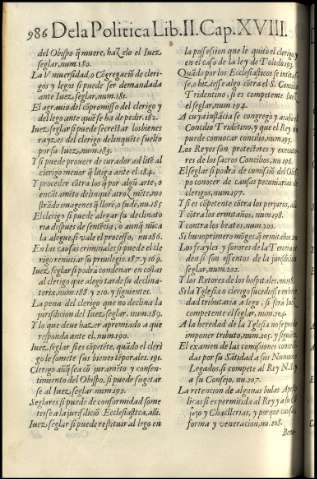 986 De la Politica Lib. II. Cap. XVIII.
del Obispo q̃ muere, haz elo el Iuez
seglar, num. 180.
La Vniuersidad, o Cõgregaciõ de cleri-
gos y legos si puede ser demandada
ante Iuez seglar, num. 181.
El agrauio del cõpromisso del clerigo y
del lego ante quiẽ se ha de pedir. 182.
Iuez seglar si puede secrestar los bienes
rayzes del clerigo delinquẽte suelto
por su Iuez, num. 183.
Y si puede proueer de curador ad litẽ al
clerigo menor q̃ litiga ante el. 184.
Y proceder cõtra los q̃ por algũ arte, o
encãtamẽto
strãdo imagenes q̃ llorã, o sudẽ, nu. 185
El clerigo si puede alegar su declinato
ria despues de sentẽcia, o aunq̃ nũca
la alegue si vale el processo, nu. 186.
En las causas criminales si puede el cle
rigo renũciar su priuilegio. 187. y 169.
Iuez seglar si podra condenar en costas
al clerigo que alego tarde su declina-
toria, num. 188. y 209. y siguientes.
La pena del clerigo que no declina la
jurisdicion del Iuez seglar. num. 189.
Y lo que deue hazer apremiado a que
responda ante el, num. 190.
Iuez seglar si es cõpetẽte, quãdo el cleri
go le somete sus bienes tẽporales. 191.
Clerigo aunq̃ sea cõ juramẽto y consen-
timiento del Obispo, si puede sugetar
se al Iuez seglar, num. 192.
Seglares si puedẽ de conformidad some
terse a la jurisdiciõ Ecclesiastica, alli.
Iuez seglar si puede restituir al lego en
la possession que le quitò el clerigo y
en el caso de la ley de Toledo
Quãdo por los Ecclesiasticos se intẽtasse,
o hiziesse algo cõtra el S. Concilio
Tridentino, si es competente Iuez
el seglar, num. 194.
A cuya instãcia se congregò y acabò el
Concilio Tridẽtino, y que el Rey no
puede conuocar concilio, num. 195.
Los Reyes son protectores y executo-
res de los sacros Concilios, nu. 196.
El seglar si podrà de comissiõ del Obis-
po conocer de causas pecuniarias de
clerigos, num. 197.
Y si es cõpetente cõtra los perjuros,
Y cõtra los ermitaños, num. 198.
Y contra los beatos, num. 200.
Si los
Los frayles y sorores de la Tercera or-
den si son essentos de la jurisdicion
seglar, num. 202.
Y los Retores de los hospitales, num.
Si la Yglesia o clerigo sucede en here-
dad tributaria a lego, si serà Iuez
competente el seglar, num. 204.
A la heredad de la Yglesia no se puede
imponer tributo, num. 205. y siguiente.
El examen de las comissiones conceda
das por su Sãtidad a sus Nuncios y
Legados, si compete al Rey N. S. y
a su Consejo. nu. 207.
La retencion de algunas bulas Aposto
licas si es permitida al Rey y a su Cõ
sejo y Chacillerias, y porque
forma y veneracion, nu. 208.